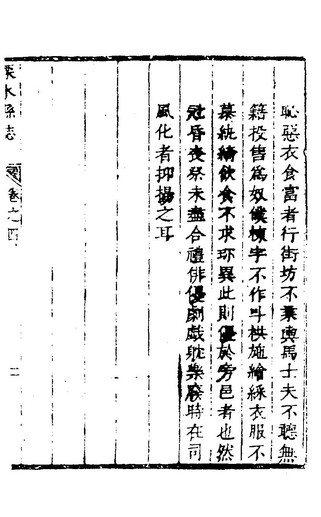 恥惡衣食富者行街坊不乗輿馬士夫不聽無
籍投售爲奴僕棟宇不作斗栱施繪綵衣服不
慕紈綺飲食不求珎異此則優於旁邑者也然
冠昏喪祭未盡合禮俳優劇戲耽樂廢時在司
風化者抑揚之耳
溧水縣志
卷之四
二